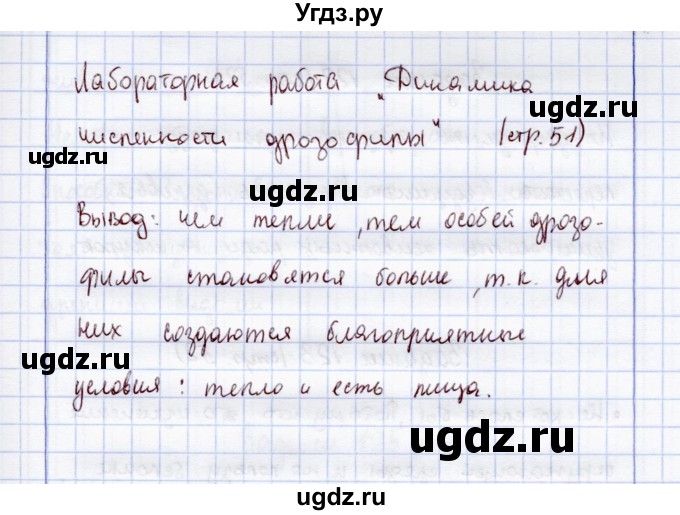 Угдз.ру
Лабораторная работа „Динамика
численности дрозофилы" (стр. 51)
ugdz.ru
ugdz.ru
Вывод: чем теплее, тем особей дрозо-
филы становятся больше, т.к. для
них создаются благоприятные
ugdz.ru
условия: тепло и есть пища.
ugdz.ru
ugdz.ru
ugdz.ru